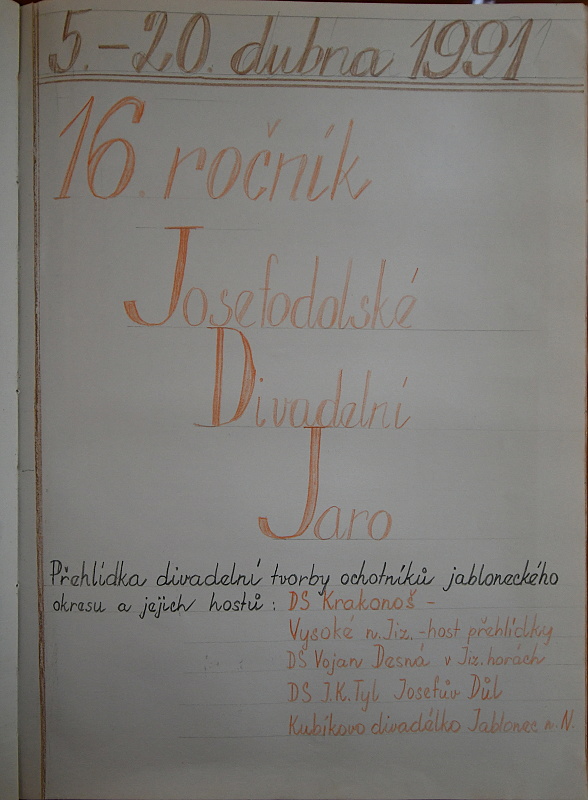 5.-20. dubna 1991
16. ročník
Josefodolské
Divadelní
Jaro
Přehlídka divadelní tvorby ochotníků jabloneckého
okresu a jejich hostů: DS Krakonoš -
Vysoké n. Jiz. - host přehlídky
DS Vojan Desná v Jiz. horách
DS J.K. Tyl Josefův Důl
Kubíkovo divadélko Jablonec n. N.